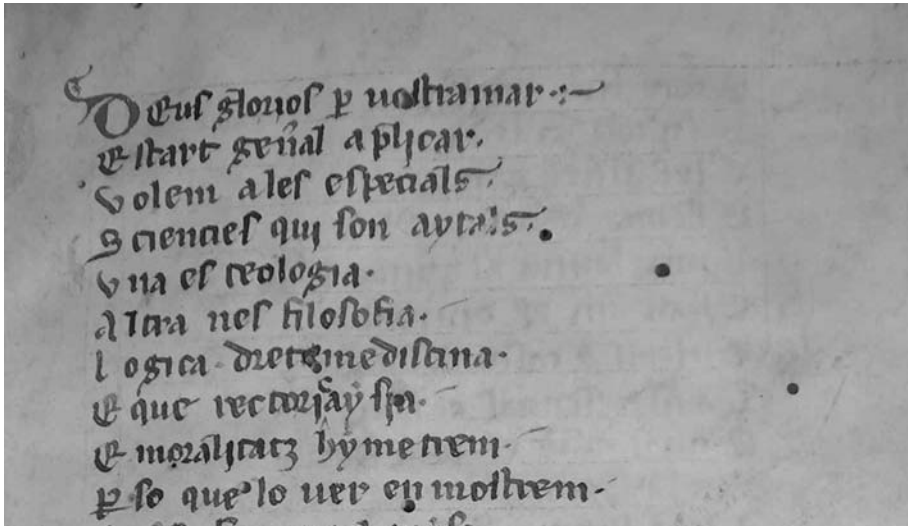 Deus glorios per vostramar
Estart general aplicar.
Volem ales especials
Sciencies qui son aytals
Una es teologia.
Altra nes filosofia.
Logica dret e mediscina.
E que rectoricay sia.
E moralitatz hy metrem.
Per so que lo ver en mostrem.